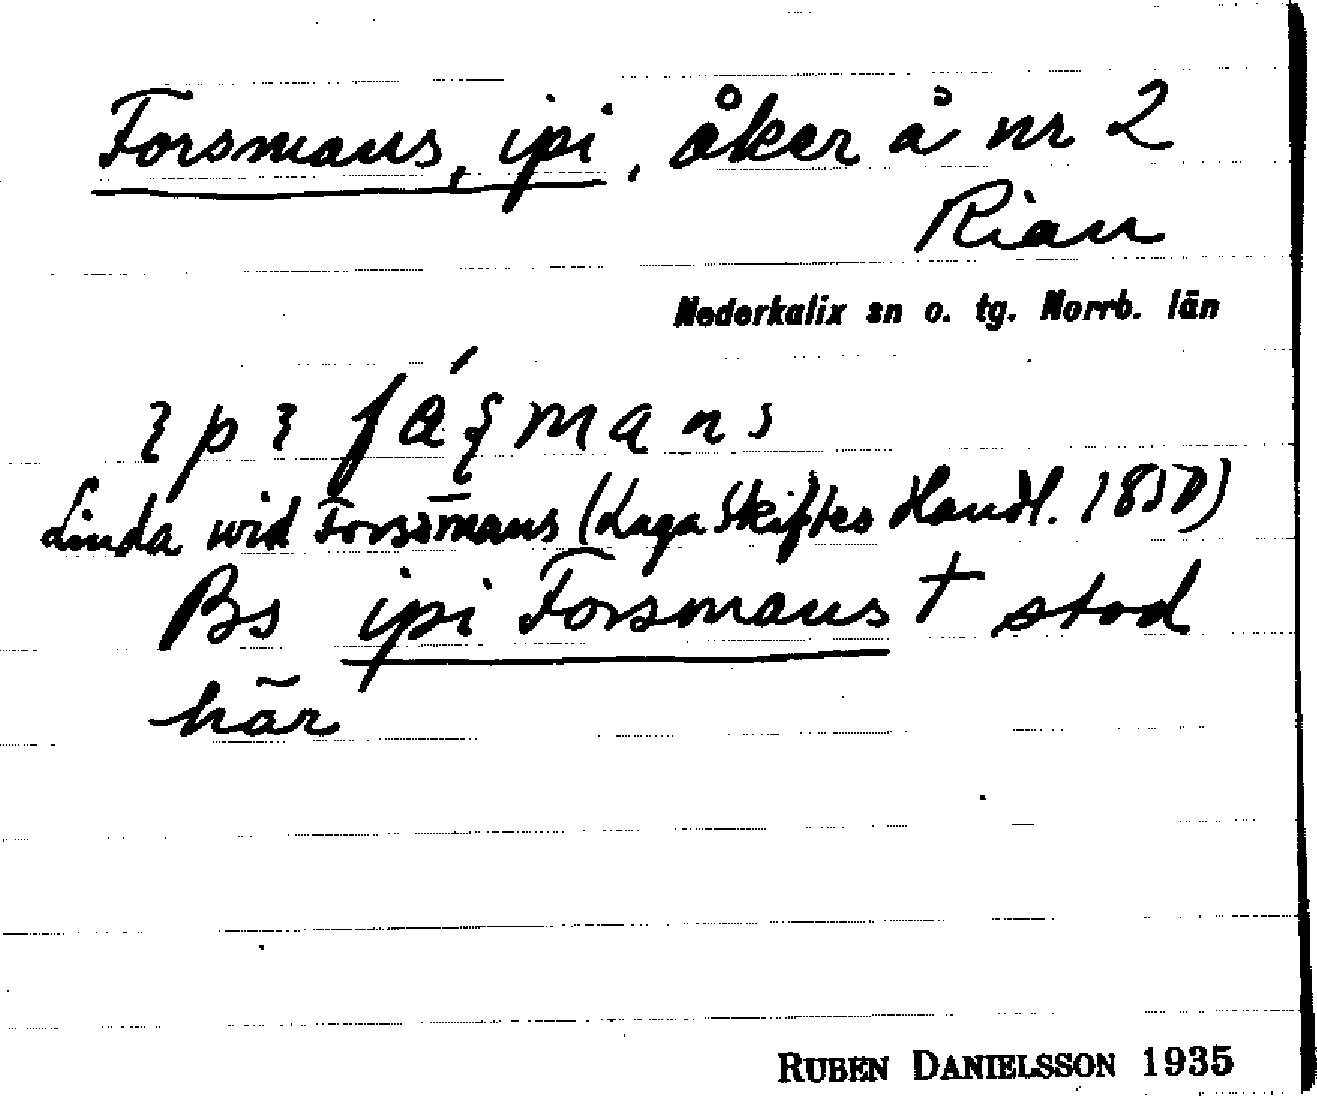 Forsmans, ipi, åker å nr 2
Rian
Nederkalix sn o. tg. Norrb. län
Linda wid Forssmans (Laga Skiftes Handl. 1850)
Bs ipi Forsmans † stod
här
RUBEN DANIELSSON 1935